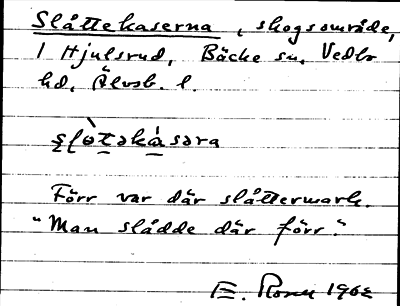 Slåttekaserna, skogsområde,
1 Hjulsrud, Bäcke sn, Vedbo
hd, Älvsb. l.
slò̀təkásəra
Förr var där slåttermark.
"Man slådde där förr."
E. 1962